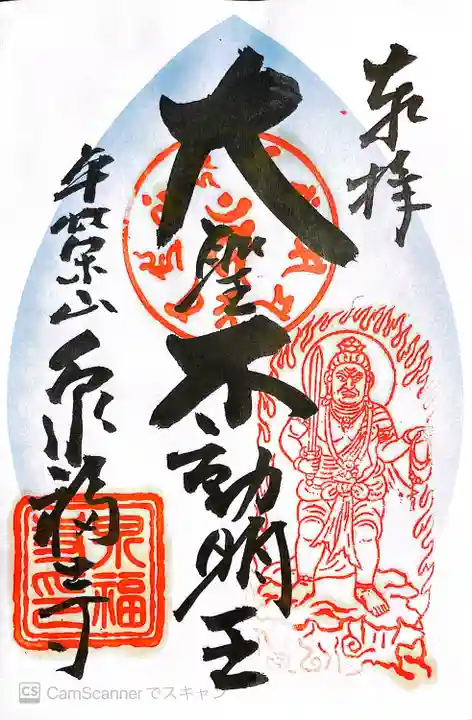 奉拝
大聖不動明王
山 泉福寺
泉福
寺印
CS CamScanner でスキャン